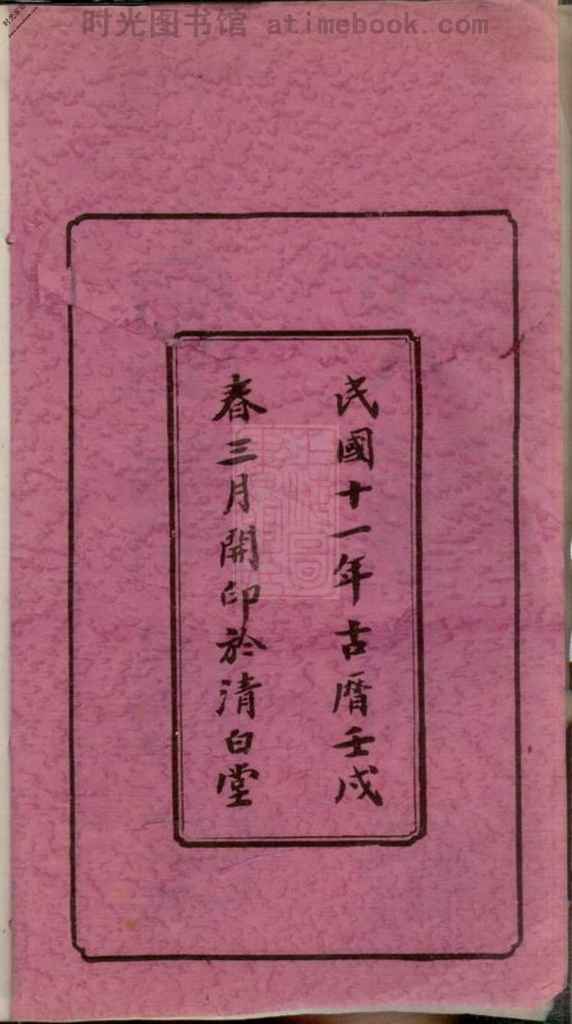 时光图书馆 atimebook.com
民國十一年古曆壬戌
春三月開印於清白堂